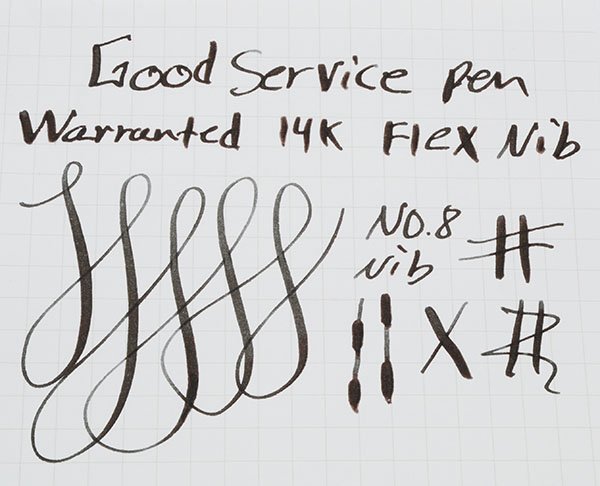 Good Service Pen
Warranted 14K Flex Nib
No. 8
Nib
# 
X #